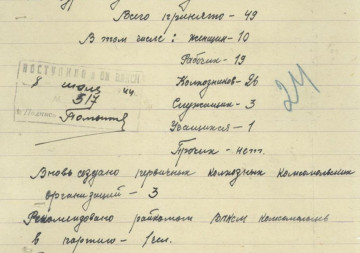 Всего принято - 49
В том числе: женщин - 10
Рабочих - 19
Колхозников - 26
Служащих - 3
Учащихся - 1
Прочих - нет.
ПОСТУПИЛО
8 июля 44
517
24
Вновь создано первичных колхозных комсомольских
организаций - 3
Рекомендовано райкомом ВЛКСМ комсомольцев
в партию - 1 чел.